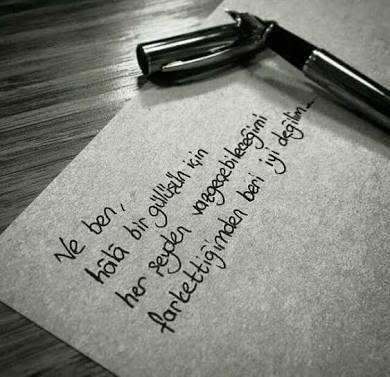 Ve ben,
hâlâ bir gülüşün için
her şeyden vazgeçebileceğimi
farkettiğimden beri iyi değilim...